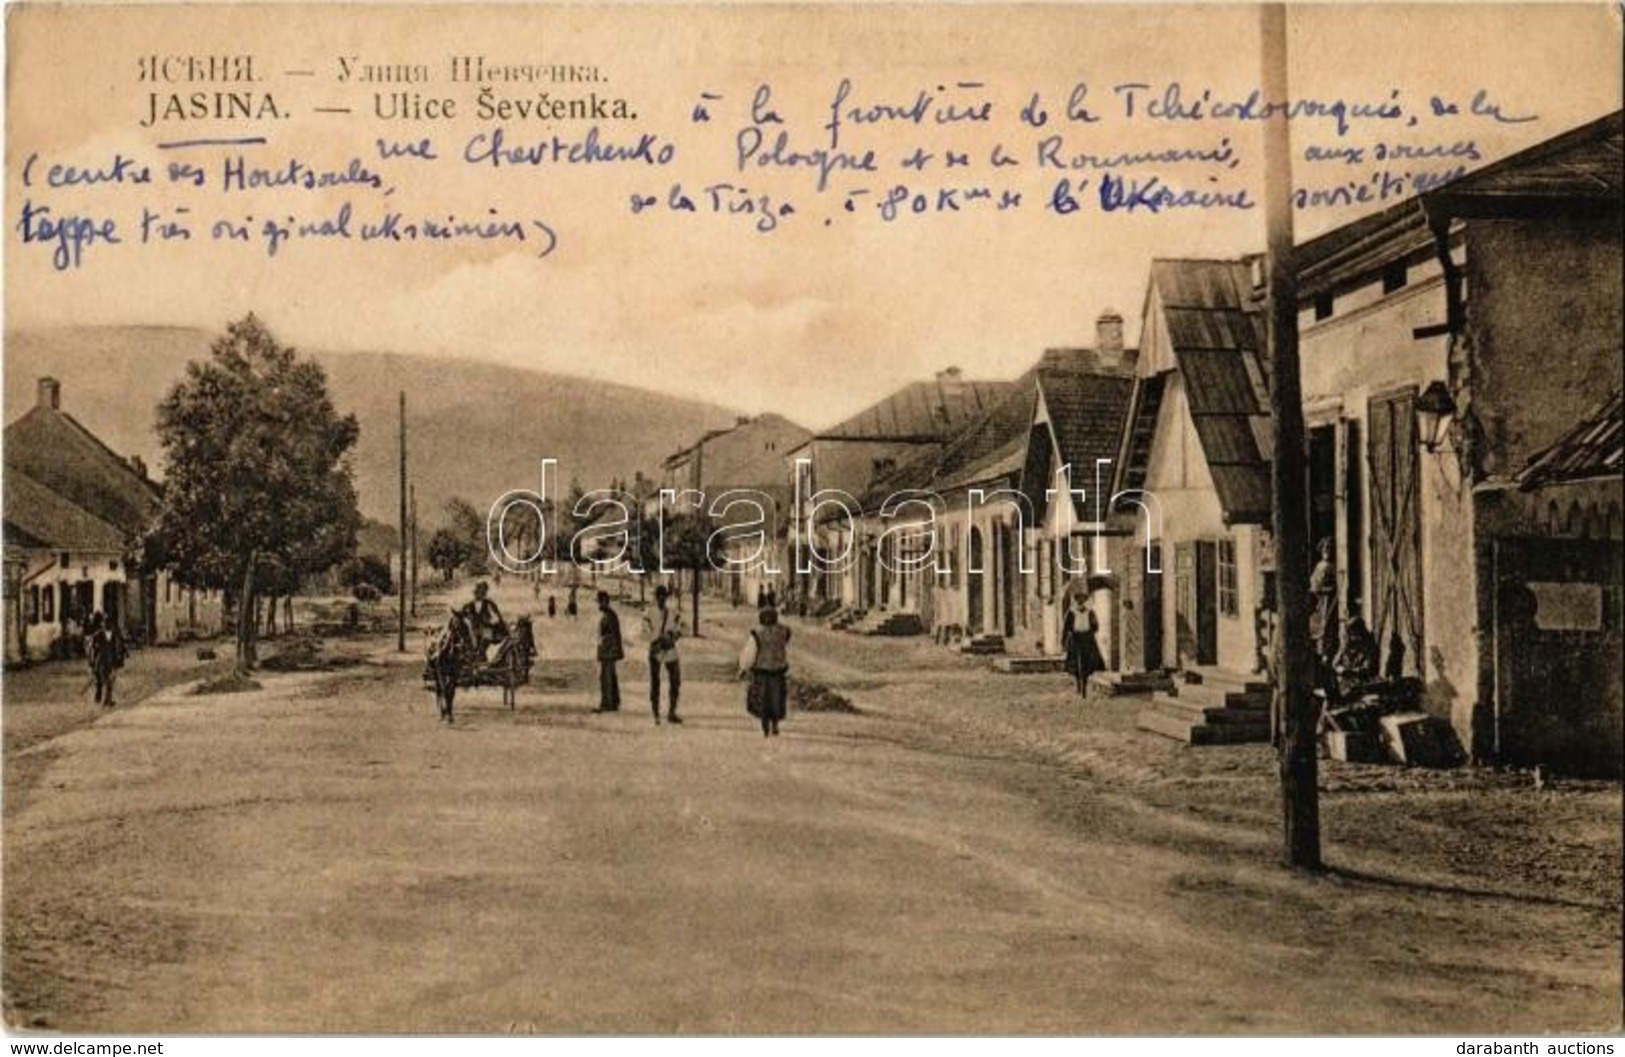 ЯСѢНЯ. — Улиця Шевченка.
JASINA. — Ulice Ševčenka.
rue Chevtchenko
(centre des Houtsoules,
type très original ukrainien)
à la frontière de la Tchécoslovaquie, de la
Pologne et de la Roumanie, aux sources
de la Tisza, à 80 Km de l'Ukraine soviétique
darabanth
www.delcampe.net
darabanth auctions